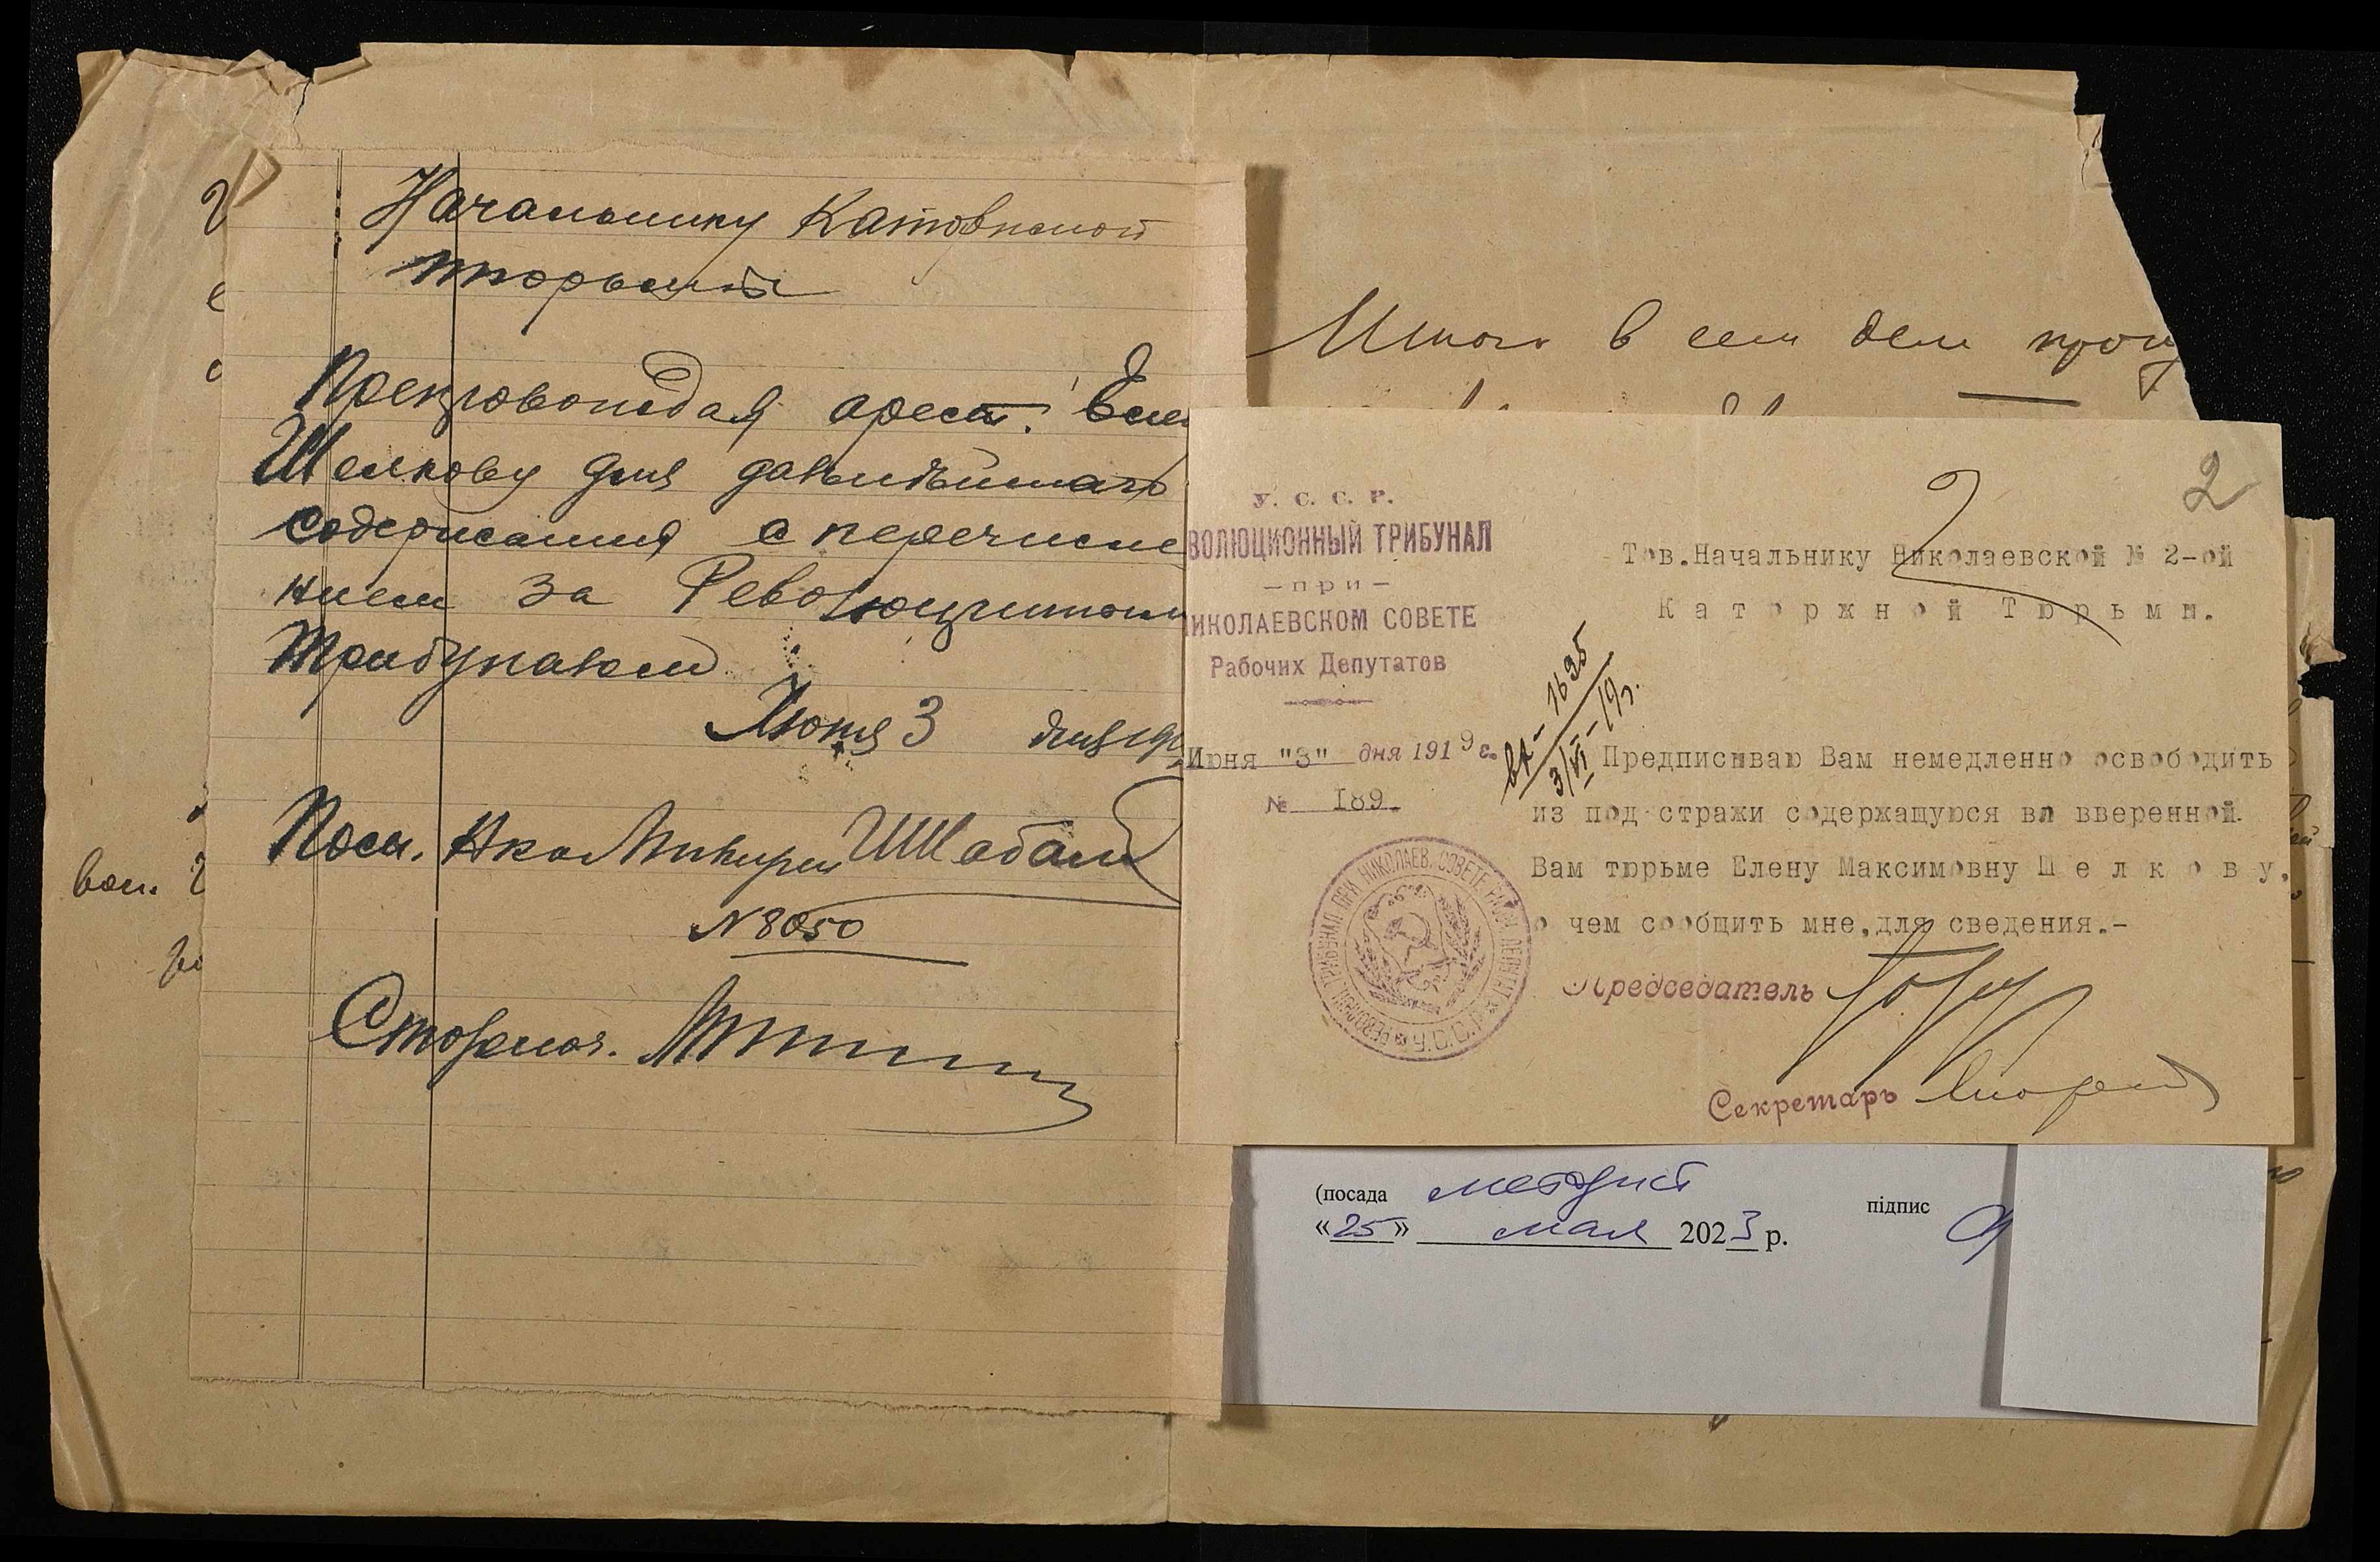 Начальнику Каторжной
тюрьмы
Препровождая арест. Еле
Шелкову для дальнѣйшаго
содержания с перечисле
нием за Революционным
Трибуналом
Июня 3 дня 191
№ 8050
вои.
Итого в сем деле прону
2
У. С. С. Р.
ВОЛЮЦИОННЫЙ ТРИБУНАЛ
— при —
ИКОЛАЕВСКОМ СОВЕТЕ
Рабочих Депутатов
Июня "3" дня 1919 г.
№ 189.
вх - 1695
3/VI - 19 г.
Тов.Начальнику Николаевской № 2-ой
Каторжной Тюрьмы.
Предписываю Вам немедленно освободить
из под стражи содержащуюся вл вверенной
Вам тюрьме Елену Максимовну Шелкову,
о чем сообщить мне,для сведения.-
Председатель
Секретарь
РЕВОЛЮЦ. ТРИБУНАЛ ПРИ НИКОЛАЕВ. СОВЕТЕ РАБОЧ. ДЕПУТАТ. У.С.С.Р.
(посада методист підпис
«25» мая 2023 р.